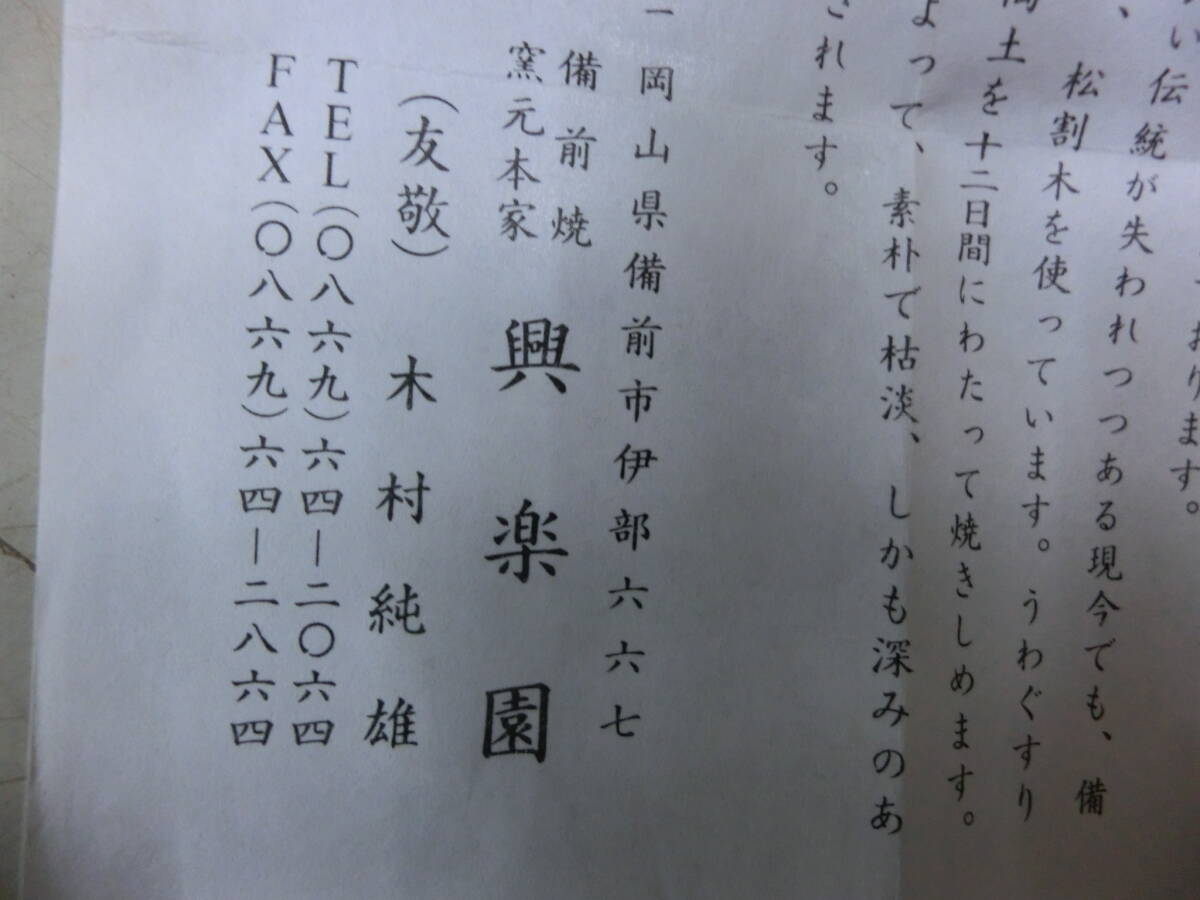 い伝統が失われつつある現今でも、備
、松割木を使っています。うわぐすり
土を十二日間にわたって焼きしめます。
よって、素朴で枯淡、しかも深みのあ
されます。
岡山県備前市伊部六六七
備前焼
窯元本家
興楽園
(友敬)木村純雄
TEL(〇八六九)六四―二〇六四
FAX(〇八六九)六四―二八六四